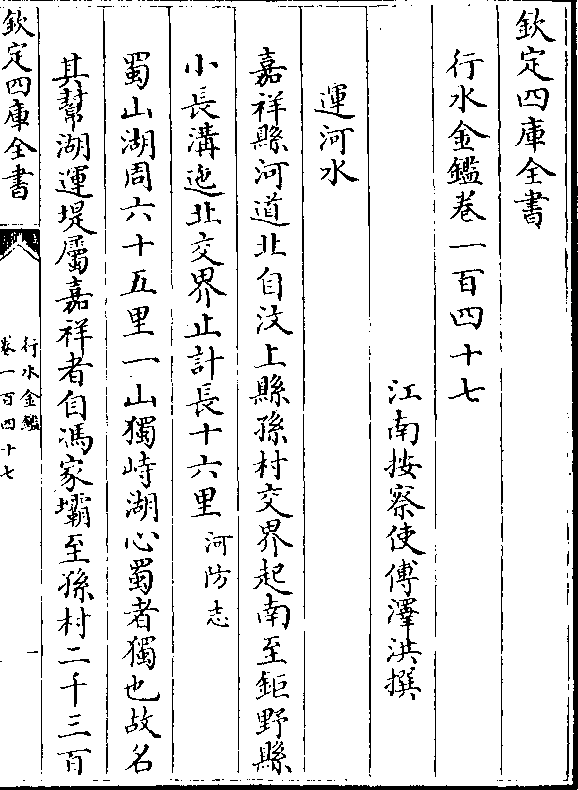 欽定四庫全書
行水金鑑卷一百四十七
江南按察使傅澤洪撰
運河水
嘉祥縣河道北自汶上縣孫村交界起南至鉅野縣
小長溝迤北交界止計長十六里河防志
蜀山湖周六十五里一山獨峙湖心蜀者獨也故名
其幫湖運堤屬嘉祥者自馮家壩至孫村二千三百
欽定四庫全書
行水金鑑
卷一百四十七
一